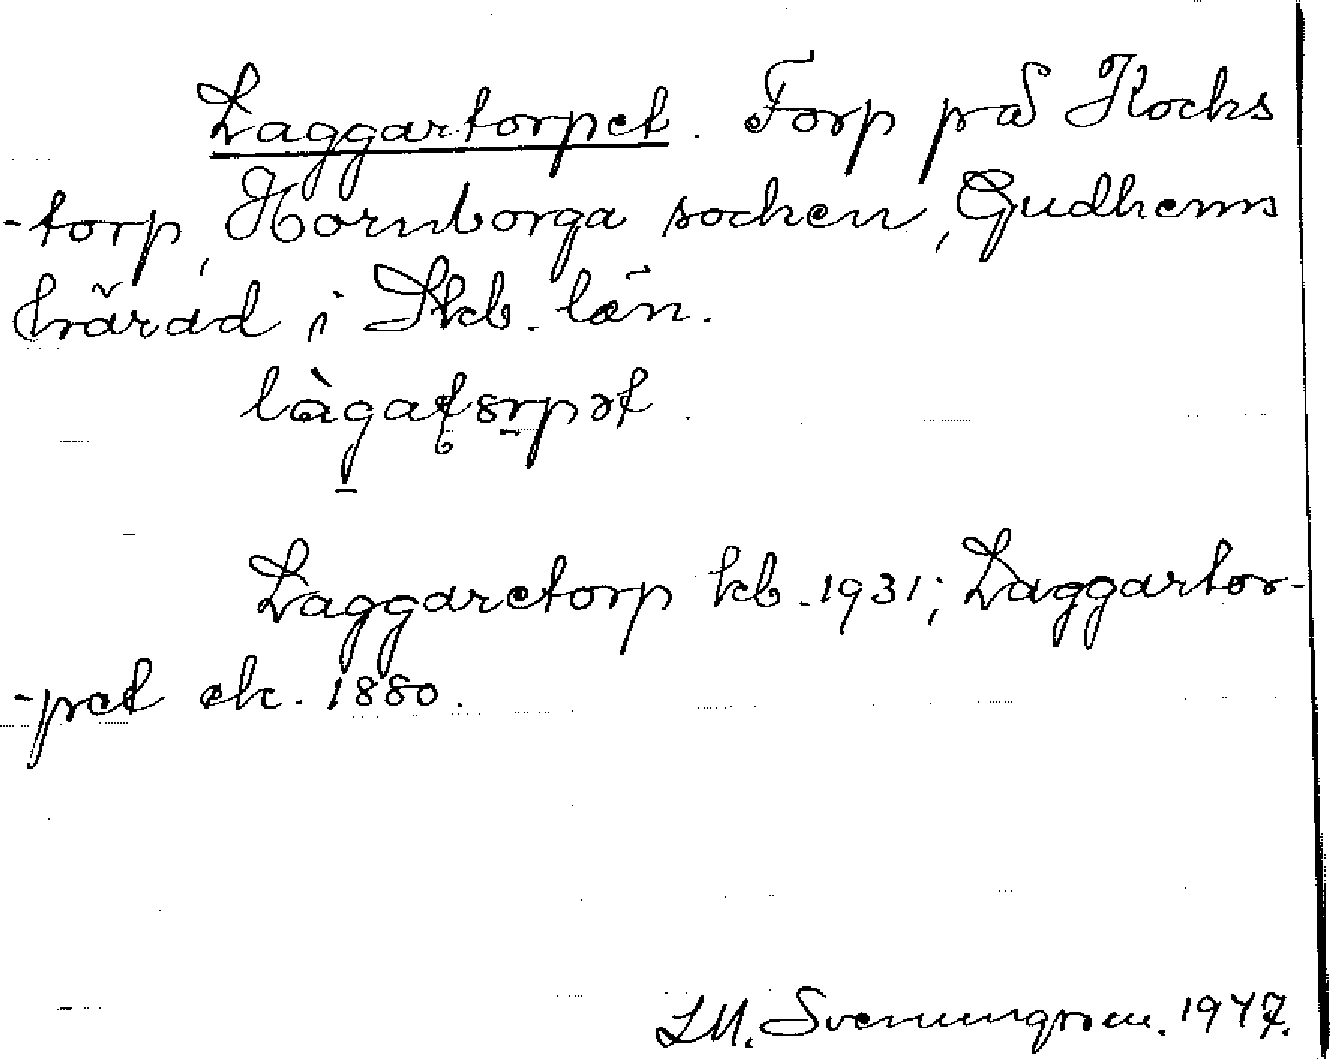 Laggartorpet. Torp på Kocks
-torp, Hornborga socken, Gudhems
härad i Skb. län.
làgaʈɞrpət
Laggaretorp kb. 1931; Laggartor-
-pet ek. 1880.
L.M. Svenungsson. 1947.